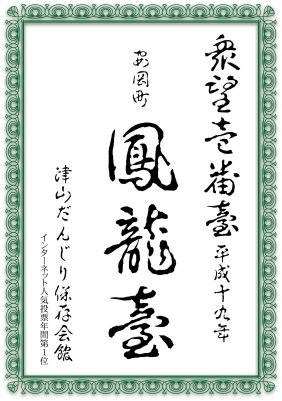 衆望壱番臺 平成十九年
安岡町
鳳龍臺
津山だんじり保存会館
インターネット人気投票年間第1位